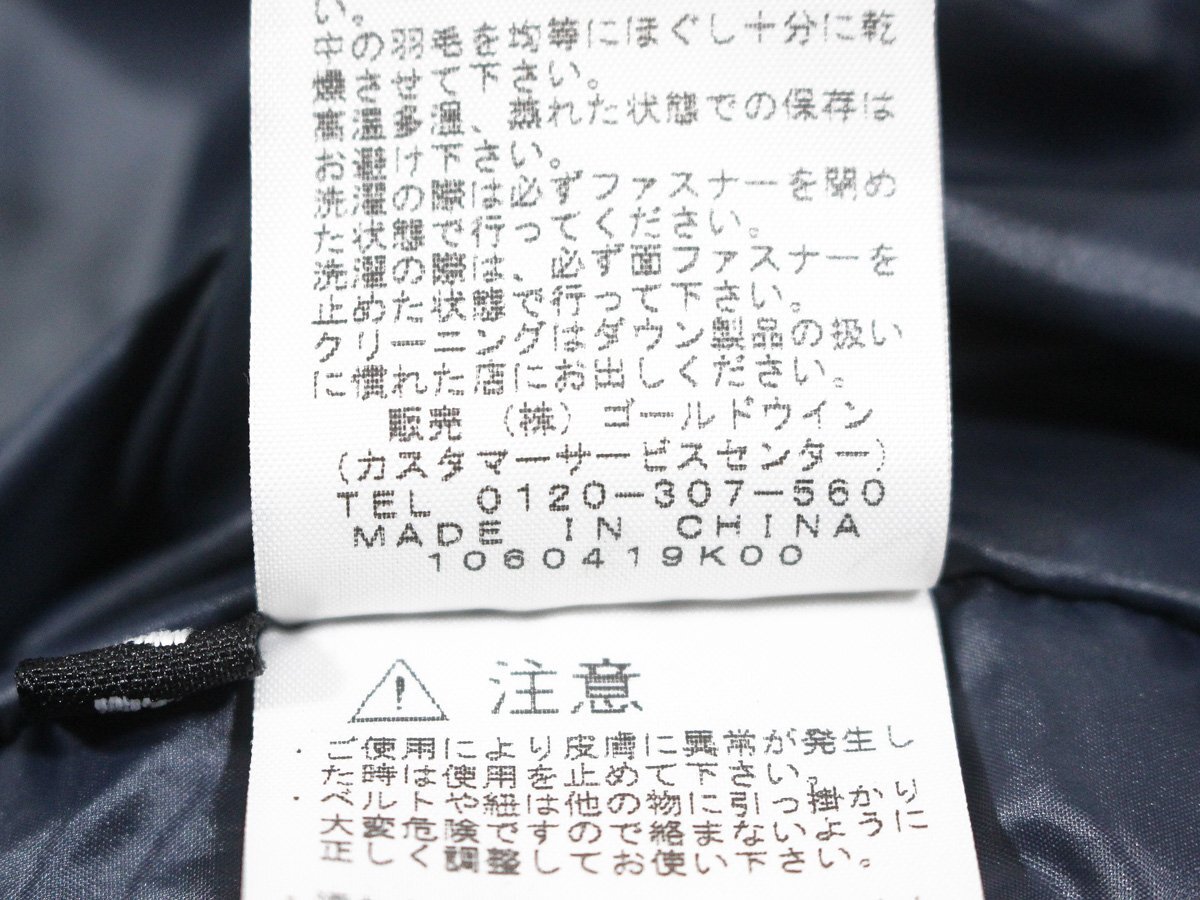 い。
中の羽毛を均等にほぐし十分に乾
燥させて下さい。
高温多湿、蒸れた状態での保存は
お避け下さい。
洗濯の際は必ずファスナーを閉め
た状態で行ってください。
洗濯の際は、必ず面ファスナーを
止めた状態で行って下さい。
クリーニングはダウン製品の扱い
に慣れた店にお出しください。
販売 (株) ゴールドウイン
(カスタマーサービスセンター)
TEL 0120-307-560
MADE IN CHINA
1060419K00
注意
・ご使用により皮膚に異常が発生し
た時は使用を止めて下さい。
・ベルトや紐は他の物に引っ掛かり
大変危険ですので絡まないように
正しく調整してお使い下さい。